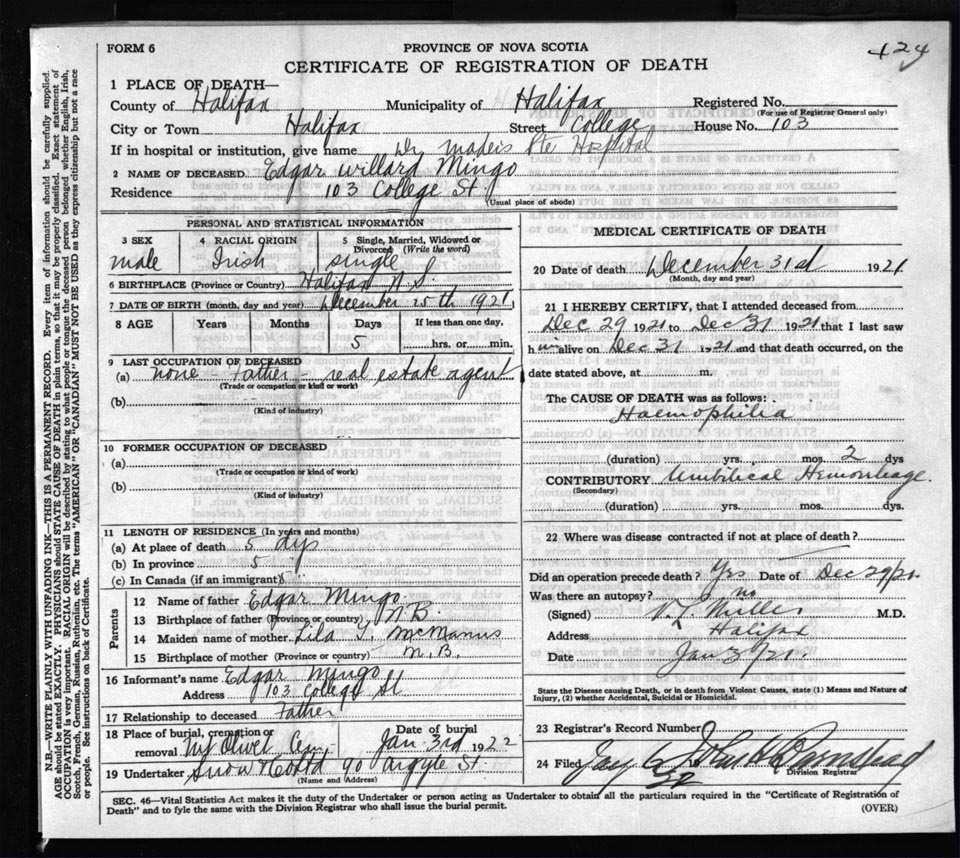 FORM 6
PROVINCE OF NOVA SCOTIA
424
CERTIFICATE OF REGISTRATION OF DEATH
1 PLACE OF DEATH—
County of Halifax Municipality of Halifax Registered No.
(For use of Registrar General only)
City or Town Halifax Street College House No. 103
If in hospital or institution, give name Dr Madeis Pte Hospital
2 NAME OF DECEASED Edgar Willard Mingo
Residence 103 College St.
(Usual place of abode)
PERSONAL AND STATISTICAL INFORMATION
3 SEX 4 RACIAL ORIGIN 5 Single, Married, Widowed or Divorced (Write the word)
male Irish single
6 BIRTHPLACE (Province or Country) Halifax N.S.
7 DATE OF BIRTH (month, day and year) December 25th 1921
8 AGE Years Months Days If less than one day,
5 hrs. or min.
9 LAST OCCUPATION OF DECEASED
(a) none - Father - real estate agent
(Trade or occupation or kind of work)
(b)
(Kind of industry)
10 FORMER OCCUPATION OF DECEASED
(a)
(Trade or occupation or kind of work)
(b)
(Kind of industry)
11 LENGTH OF RESIDENCE (In years and months)
(a) At place of death 5 dys
(b) In province 5
(c) In Canada (if an immigrant)
Parents
12 Name of father Edgar Mingo
13 Birthplace of father (Province or country) N B.
14 Maiden name of mother Lila T. McManus
15 Birthplace of mother (Province or country) N.B.
16 Informant's name Edgar Mingo
Address 103 College St
17 Relationship to deceased Father
18 Place of burial, cremation or removal Mt Olivet Cem. Date of burial Jan 3rd 1922
19 Undertaker Snow & Co Ltd 90 Argyle St.
(Name and Address)
MEDICAL CERTIFICATE OF DEATH
20 Date of death December 31st 1921
(Month, day and year)
21 I HEREBY CERTIFY, that I attended deceased from
Dec 29 1921 to Dec 31 1921 that I last saw
h alive on Dec 31 1921 and that death occurred, on the
date stated above, at m.
The CAUSE OF DEATH was as follows:
Haemophilia
(duration) yrs. mos. 2 dys
CONTRIBUTORY Umbilical Hemorrhage.
(Secondary)
(duration) yrs. mos. dys.
22 Where was disease contracted if not at place of death?
Did an operation precede death? Yes Date of Dec 29/21
Was there an autopsy? no
(Signed) V. L. Miller M.D.
Address Halifax
Date Jan 3/21
State the Disease causing Death, or in death from Violent Causes, state (1) Means and Nature of
Injury, (2) whether Accidental, Suicidal or Homicidal.
23 Registrar's Record Number
24 Filed
Division Registrar
SEC. 46—Vital Statistics Act makes it the duty of the Undertaker or person acting as Undertaker to obtain all the particulars required in the "Certificate of Registration of
Death" and to fyle the same with the Division Registrar who shall issue the burial permit.
(OVER)
N.B.—WRITE PLAINLY WITH UNFADING INK—THIS IS A PERMANENT RECORD. Every item of information should be carefully supplied.
AGE should be stated EXACTLY. PHYSICIANS should STATE CAUSE OF DEATH in plain terms, so that it may be properly classified. Exact statement of
OCCUPATION is very important. RACIAL ORIGIN will be described by stating to what people or tongue the deceased person belonged whether English, Irish,
Scotch, French, German, Russian, Ruthenian, etc. The terms "AMERICAN" OR "CANADIAN" MUST NOT BE USED as they express citizenship but not a race
or people. See instructions on back of Certificate.